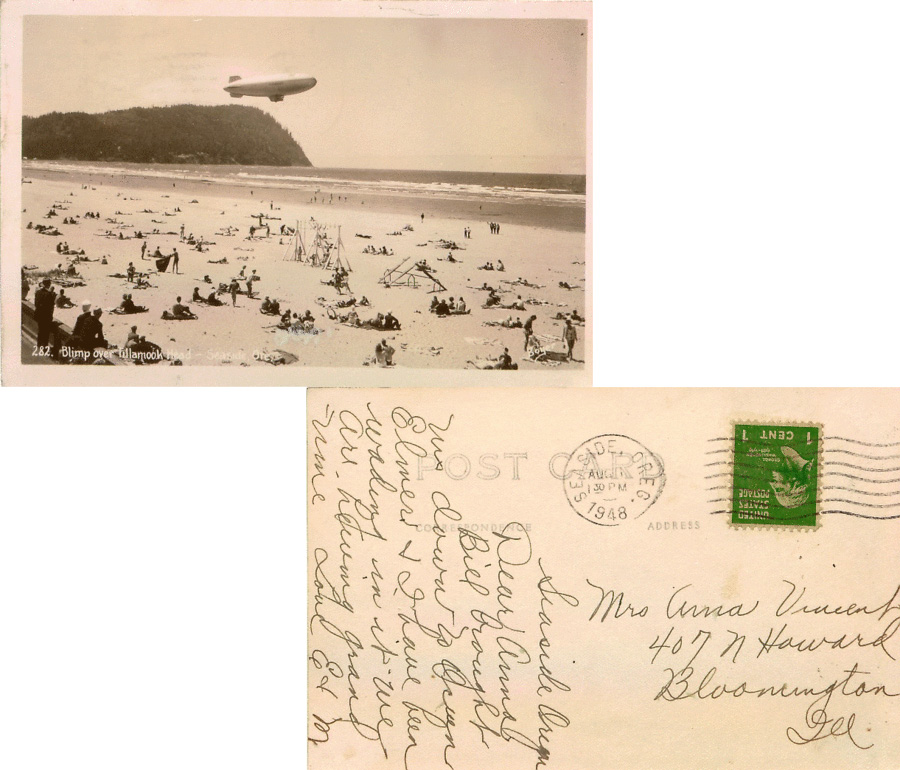 282. Blimp over Tillamook Head - Seaside, Ore.
Boy
POST CARD
CORRESPONDENCE
ADDRESS
SEASIDE, OREG.
AUG
1 30 PM
1948
1 CENT 1
UNITED
STATES
POSTAGE
Seaside Oregn
Dear Anna,
Bill brought
us down to
Elmer & I have been
wading in it. We
are having grand
time Love E & M
Mrs Anna Vincent
407 N Howard
Bloomington
Ill